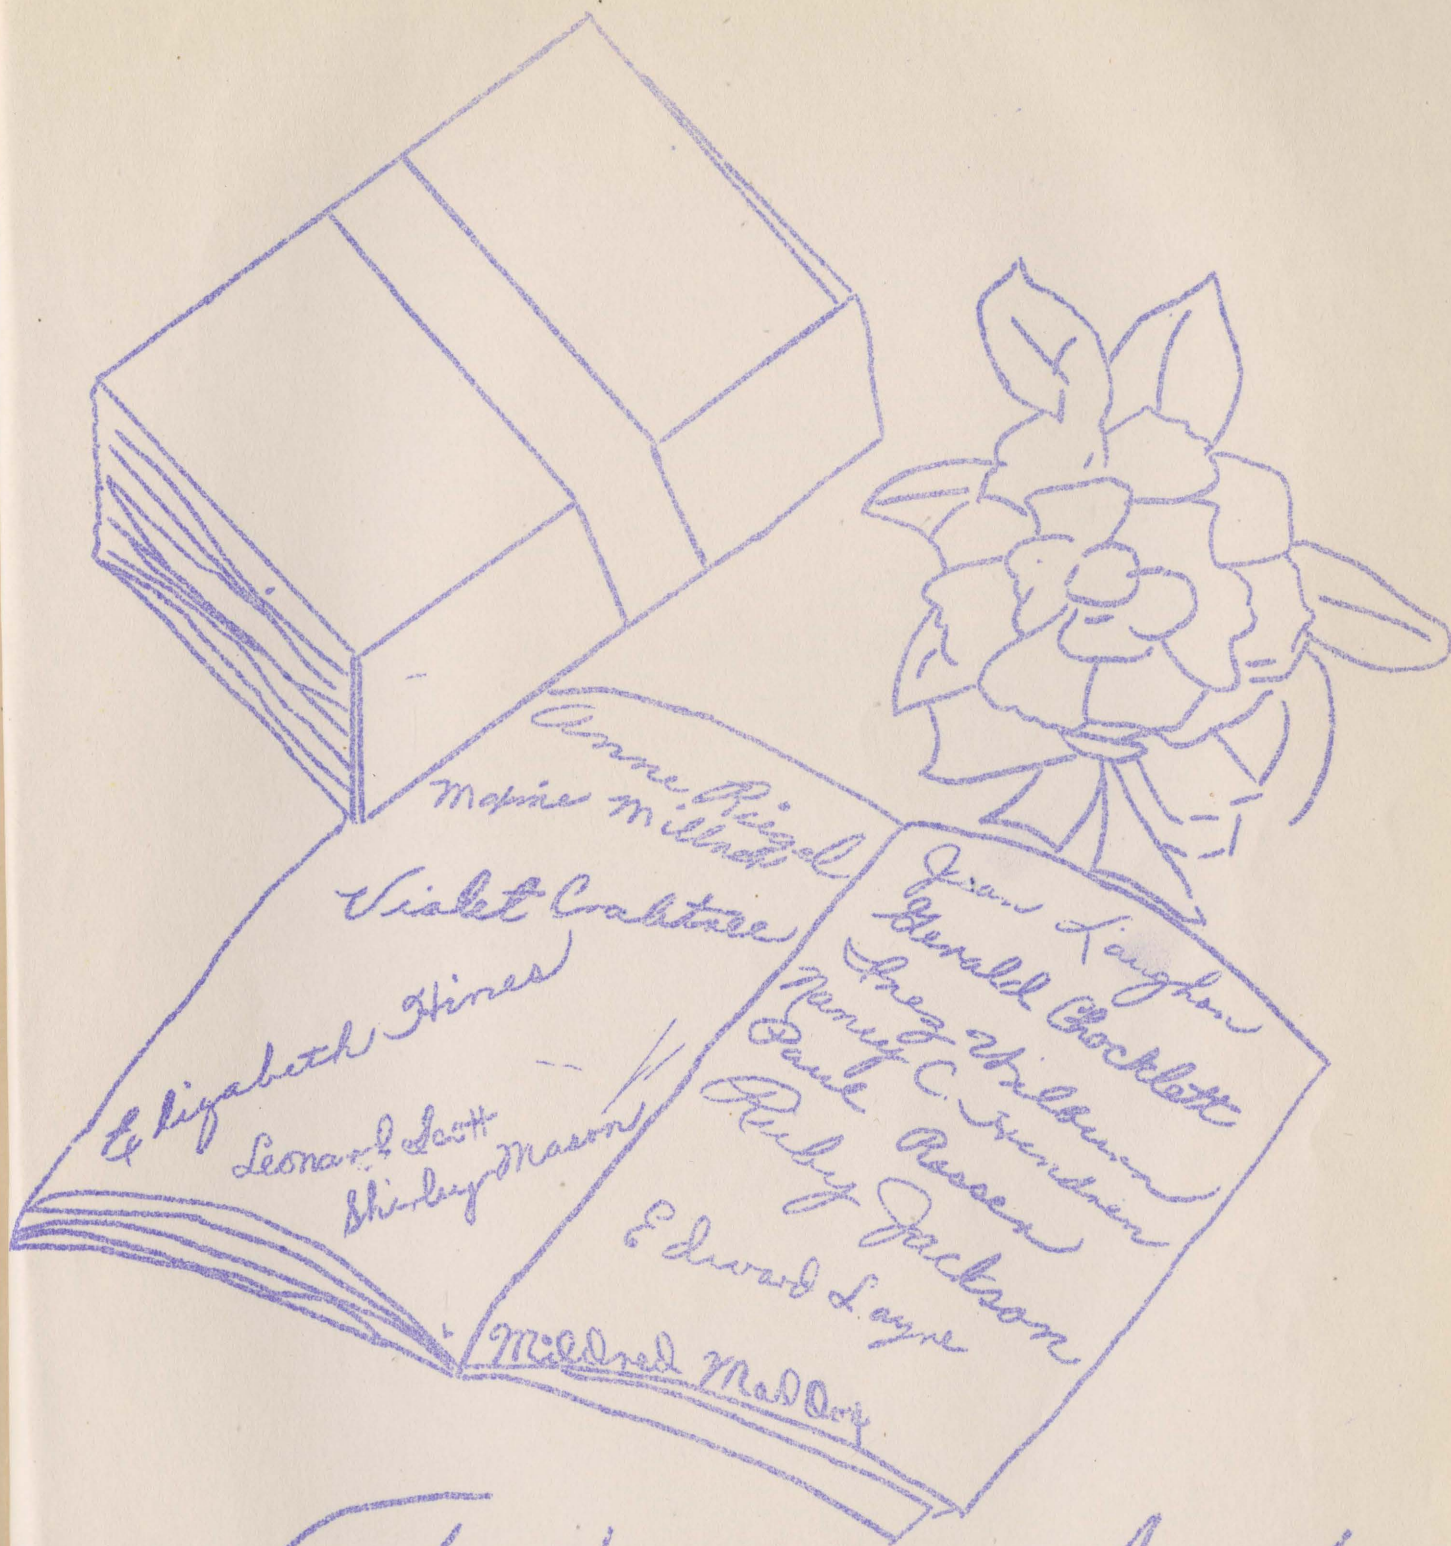 Anne Riegel
Maxine Millner
Violet Crabtree
Elizabeth Hines
Leonard Scott
Shirley Mason
Jean Laughon
Gerald Chocklett
Inez Wilburn
Nancy C. Hendrien
Paul Rosser
Ruby Jackson
Edward Layne
Mildred Maddox